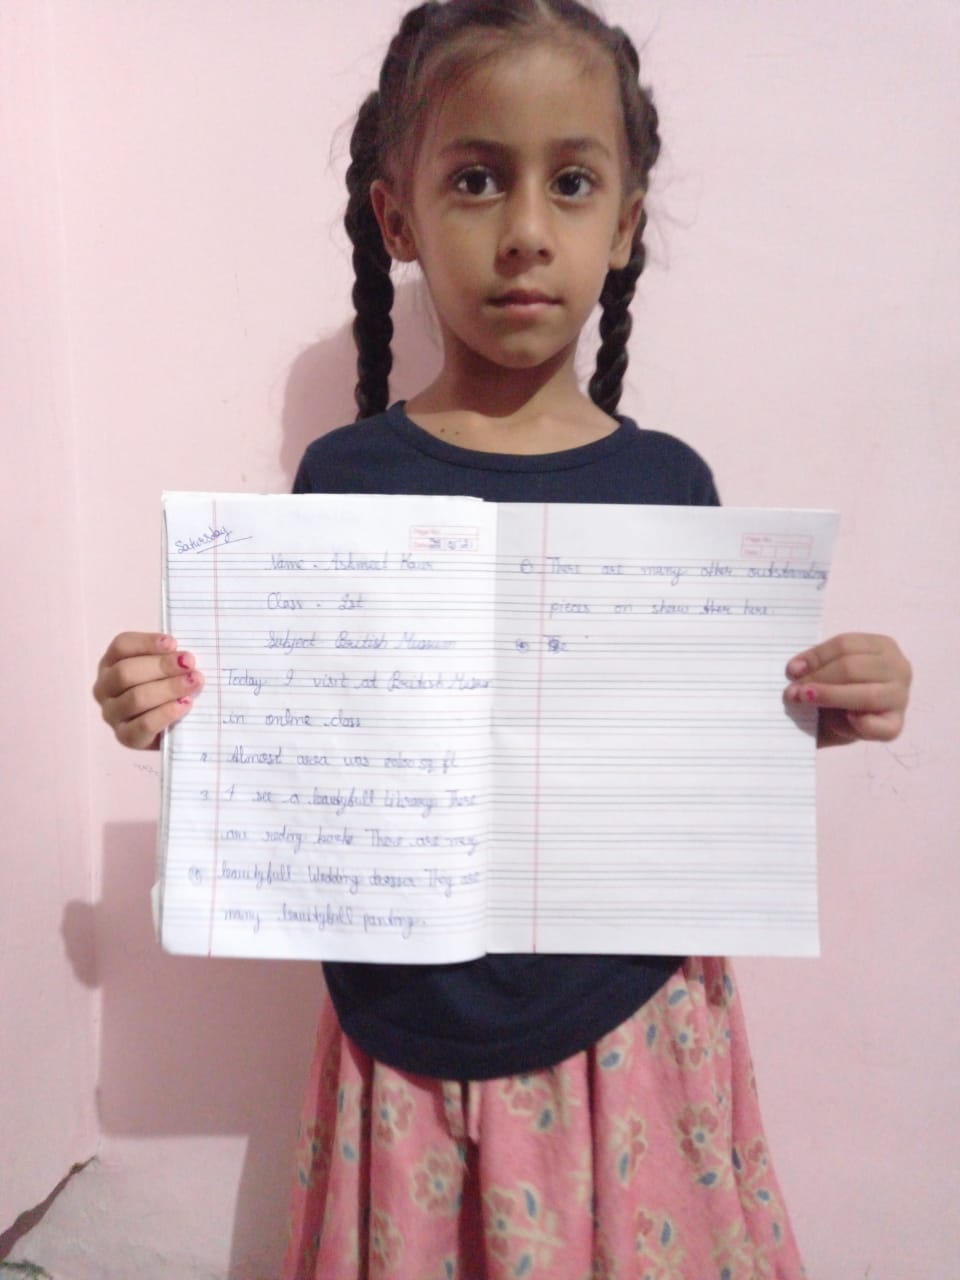 Saturday
Name - Ashmeet Kaur
Class - 1st
Subject British Museum
Today I visit at British
in online class
2. Almost area was sq ft
3. I see a beautyfull Library There
are reding books There are very
beautyfull Wedding dresses They are
many beautyfull panting.
There are many other outstanding
pieces on show here.